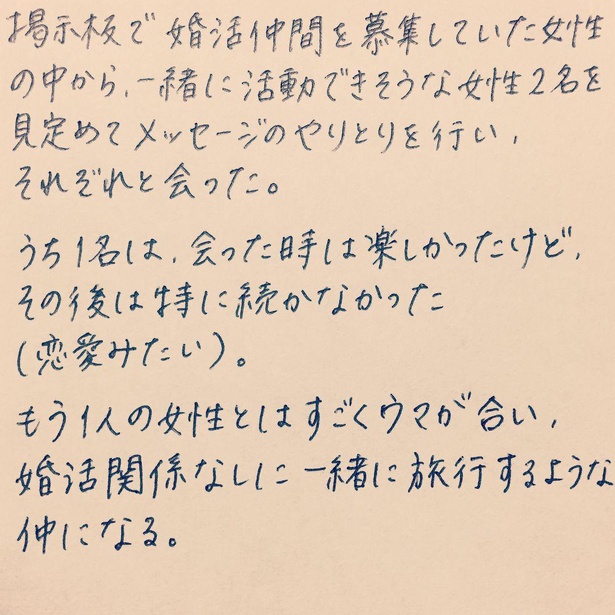 掲示板で婚活仲間を募集していた女性
の中から、一緒に活動できそうな女性2名を
見定めてメッセージのやりとりを行い、
それぞれと会った。
うち1名は、会った時は楽しかったけど、
その後は特に続かなかった
(恋愛みたい)。
もう1人の女性とはすごくウマが合い、
婚活関係なしに一緒に旅行するような
仲になる。